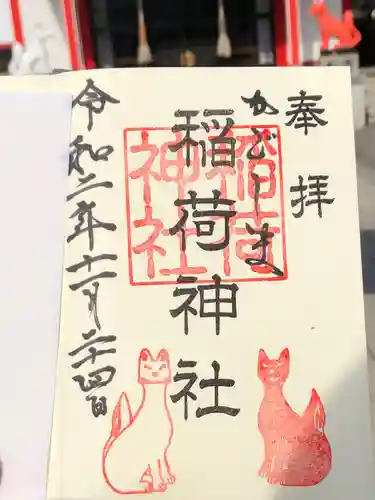 奉拝
かぶしま
稲荷神社
稲荷神社
令和二年十一月二十四日